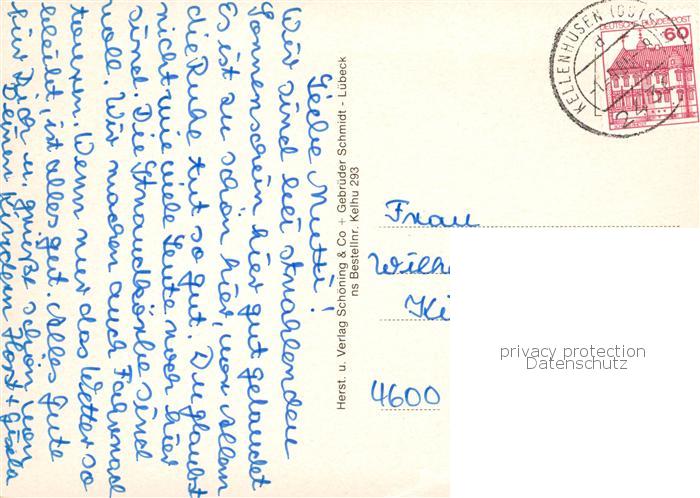 Liebe Mutti!
Wir sind bei strahlenden
Sonnenschein hier gut gelandet
Es ist zu schön hier, vor allem
die Ruhe tut so gut. Du glaubst
nicht wie viele Leute noch hier
sind. Die Strandkörbe sind
voll. Wir machen auch Fahrrad
touren. Wenn nur das Wetter so
bleibt, ist alles gut. Alles Gute
für Dich u. grüße schön von
Deinen Kindern Horst + Gisela
Herst. u. Verlag Schöning & Co + Gebrüder Schmidt - Lübeck
ns Bestellnr. Kelhu 293
KELLENHUSEN (OSTS
2436
DEUTSCHE BUNDESPOST
60
Frau
Wilh
Ki
4600
privacy protection
Datenschutz